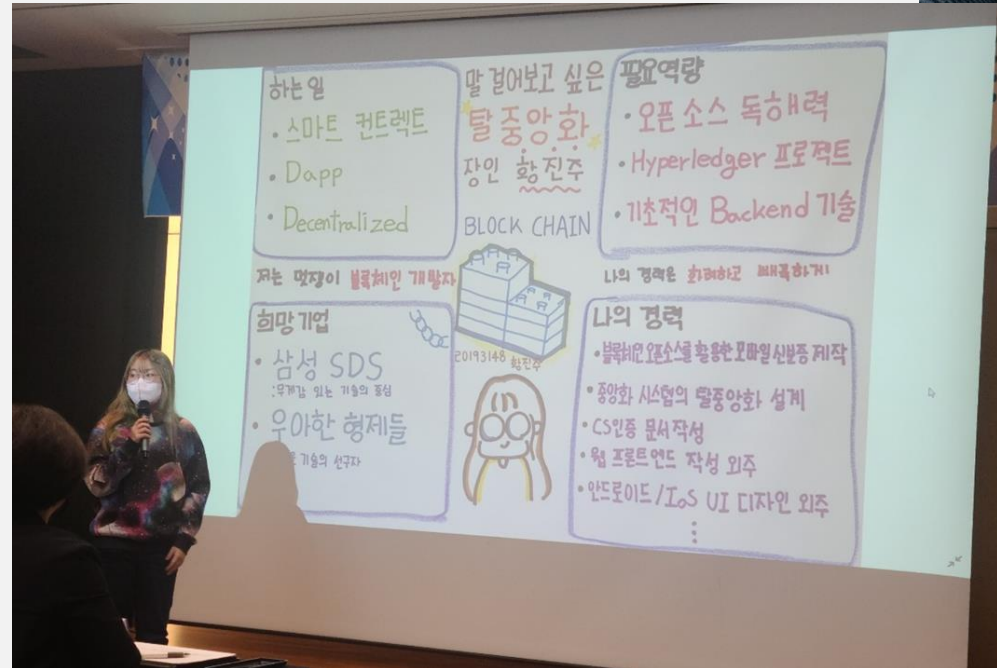 하는 일
• 스마트 컨트렉트
• Dapp
• Decentralized
말 걸어보고 싶은
탈중앙화
장인 황진주
BLOCK CHAIN
필요역량
• 오픈 소스 독해력
• Hyperledger 프로젝트
• 기초적인 Backend 기술
저는 멋쟁이 블록체인 개발자
나의 경력은 화려하고 빼곡하게
희망기업
• 삼성 SDS
: 무게감 있는 기술의 중심
• 우아한 형제들
기술의 선구자
20193148 황진주
나의 경력
• 블록체인 오픈소스를 활용한 모바일 신분증 제작
• 중앙화 시스템의 탈중앙화 설계
• CS인증 문서 작성
• 웹 프론트엔드 작성 외주
• 안드로이드/IoS UI 디자인 외주